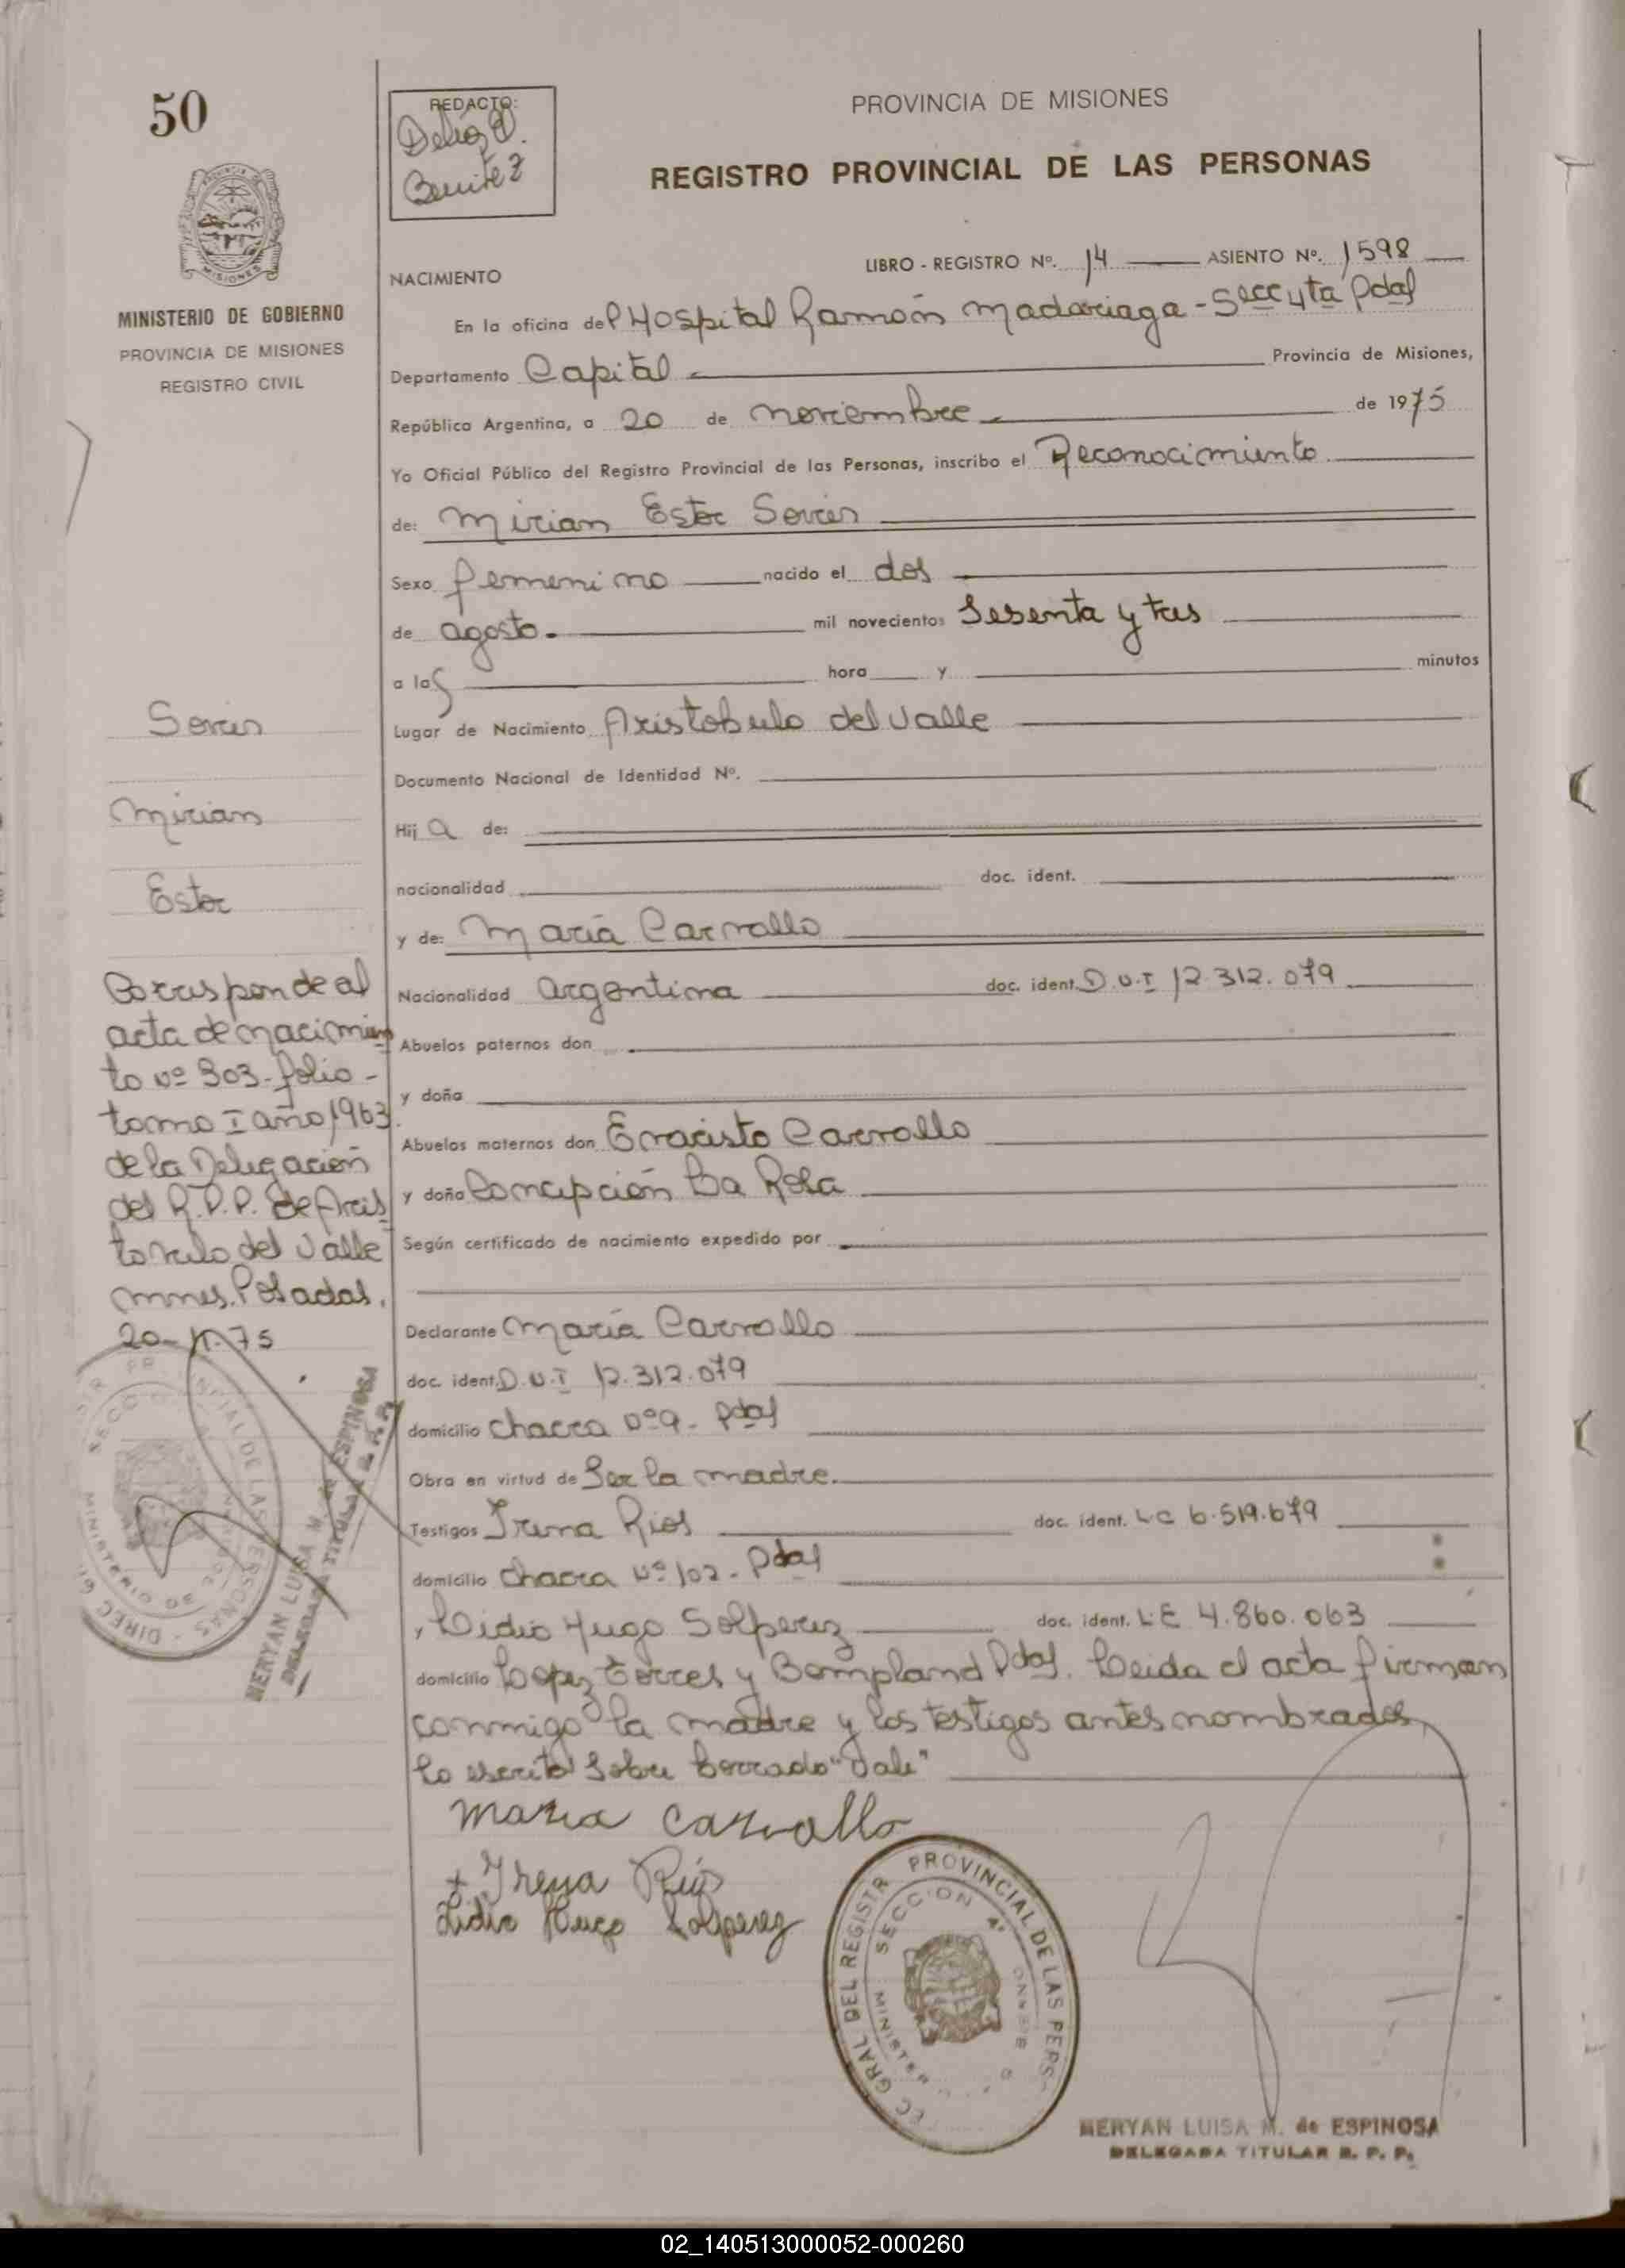 50
REDACTO:
Benitez
PROVINCIA DE MISIONES
REGISTRO PROVINCIAL DE LAS PERSONAS
MISIONES
MINISTERIO DE GOBIERNO
PROVINCIA DE MISIONES
REGISTRO CIVIL
NACIMIENTO
LIBRO - REGISTRO Nº. 14 ASIENTO Nº. 1598
En la oficina del Hospital Ramón Madariaga - Secc 4ta Pdas
Departamento Capital Provincia de Misiones,
República Argentina, a 20 de noviembre de 1975
Yo Oficial Público del Registro Provincial de las Personas, inscribo el Reconocimiento
de: Mirian Ester
Sexo femenino nacido el dos
de agosto mil novecientos Sesenta y tres
a las hora y minutos
Lugar de Nacimiento Aristobulo del Valle
Documento Nacional de Identidad Nº.
Hija de:
nacionalidad doc. ident.
y de: Maria Carvallo
Nacionalidad argentina doc. ident. D.U.I 12.312.079
Abuelos paternos don
y doña
Abuelos maternos don Evaristo Carvallo
y doña Concepción Da Rosa
Según certificado de nacimiento expedido por
Declarante Maria Carvallo
doc. ident. D.U.I 12.312.079
domicilio chacra nº 9 - Pdas
Obra en virtud de Ser la madre.
Testigos Irena Rios doc. ident. LC 6.519.679
domicilio chacra Nº 102 - Pdas
y Lidio Hugo Solperez doc. ident. L.E 4.860.063
domicilio Lopez Torres y Bompland Pdas. Leida el acta firman
conmigo la madre y los testigos antes nombrados,
lo escrito Sobre borrado "Vale"
Maria Carvallo
+ Irena Rios
Lidio Hugo Solperez
Mirian
Ester
Corresponde al
acta de nacimien
to nº 303 - folio -
tomo I año 1963.
de la Delegación
del R.P.P. de Aris
tobulo del Valle
mnes. Posadas,
20-11-75
NERYAN LUISA M. de ESPINOSA
DELEGADA TITULAR R. P. P.
GRAL DEL REGISTR PROVINCIAL DE LAS PERS
SECCION 4ª
NERYAN LUISA M. de ESPINOSA
DELEGADA TITULAR R. P. P.
02_140513000052-000260